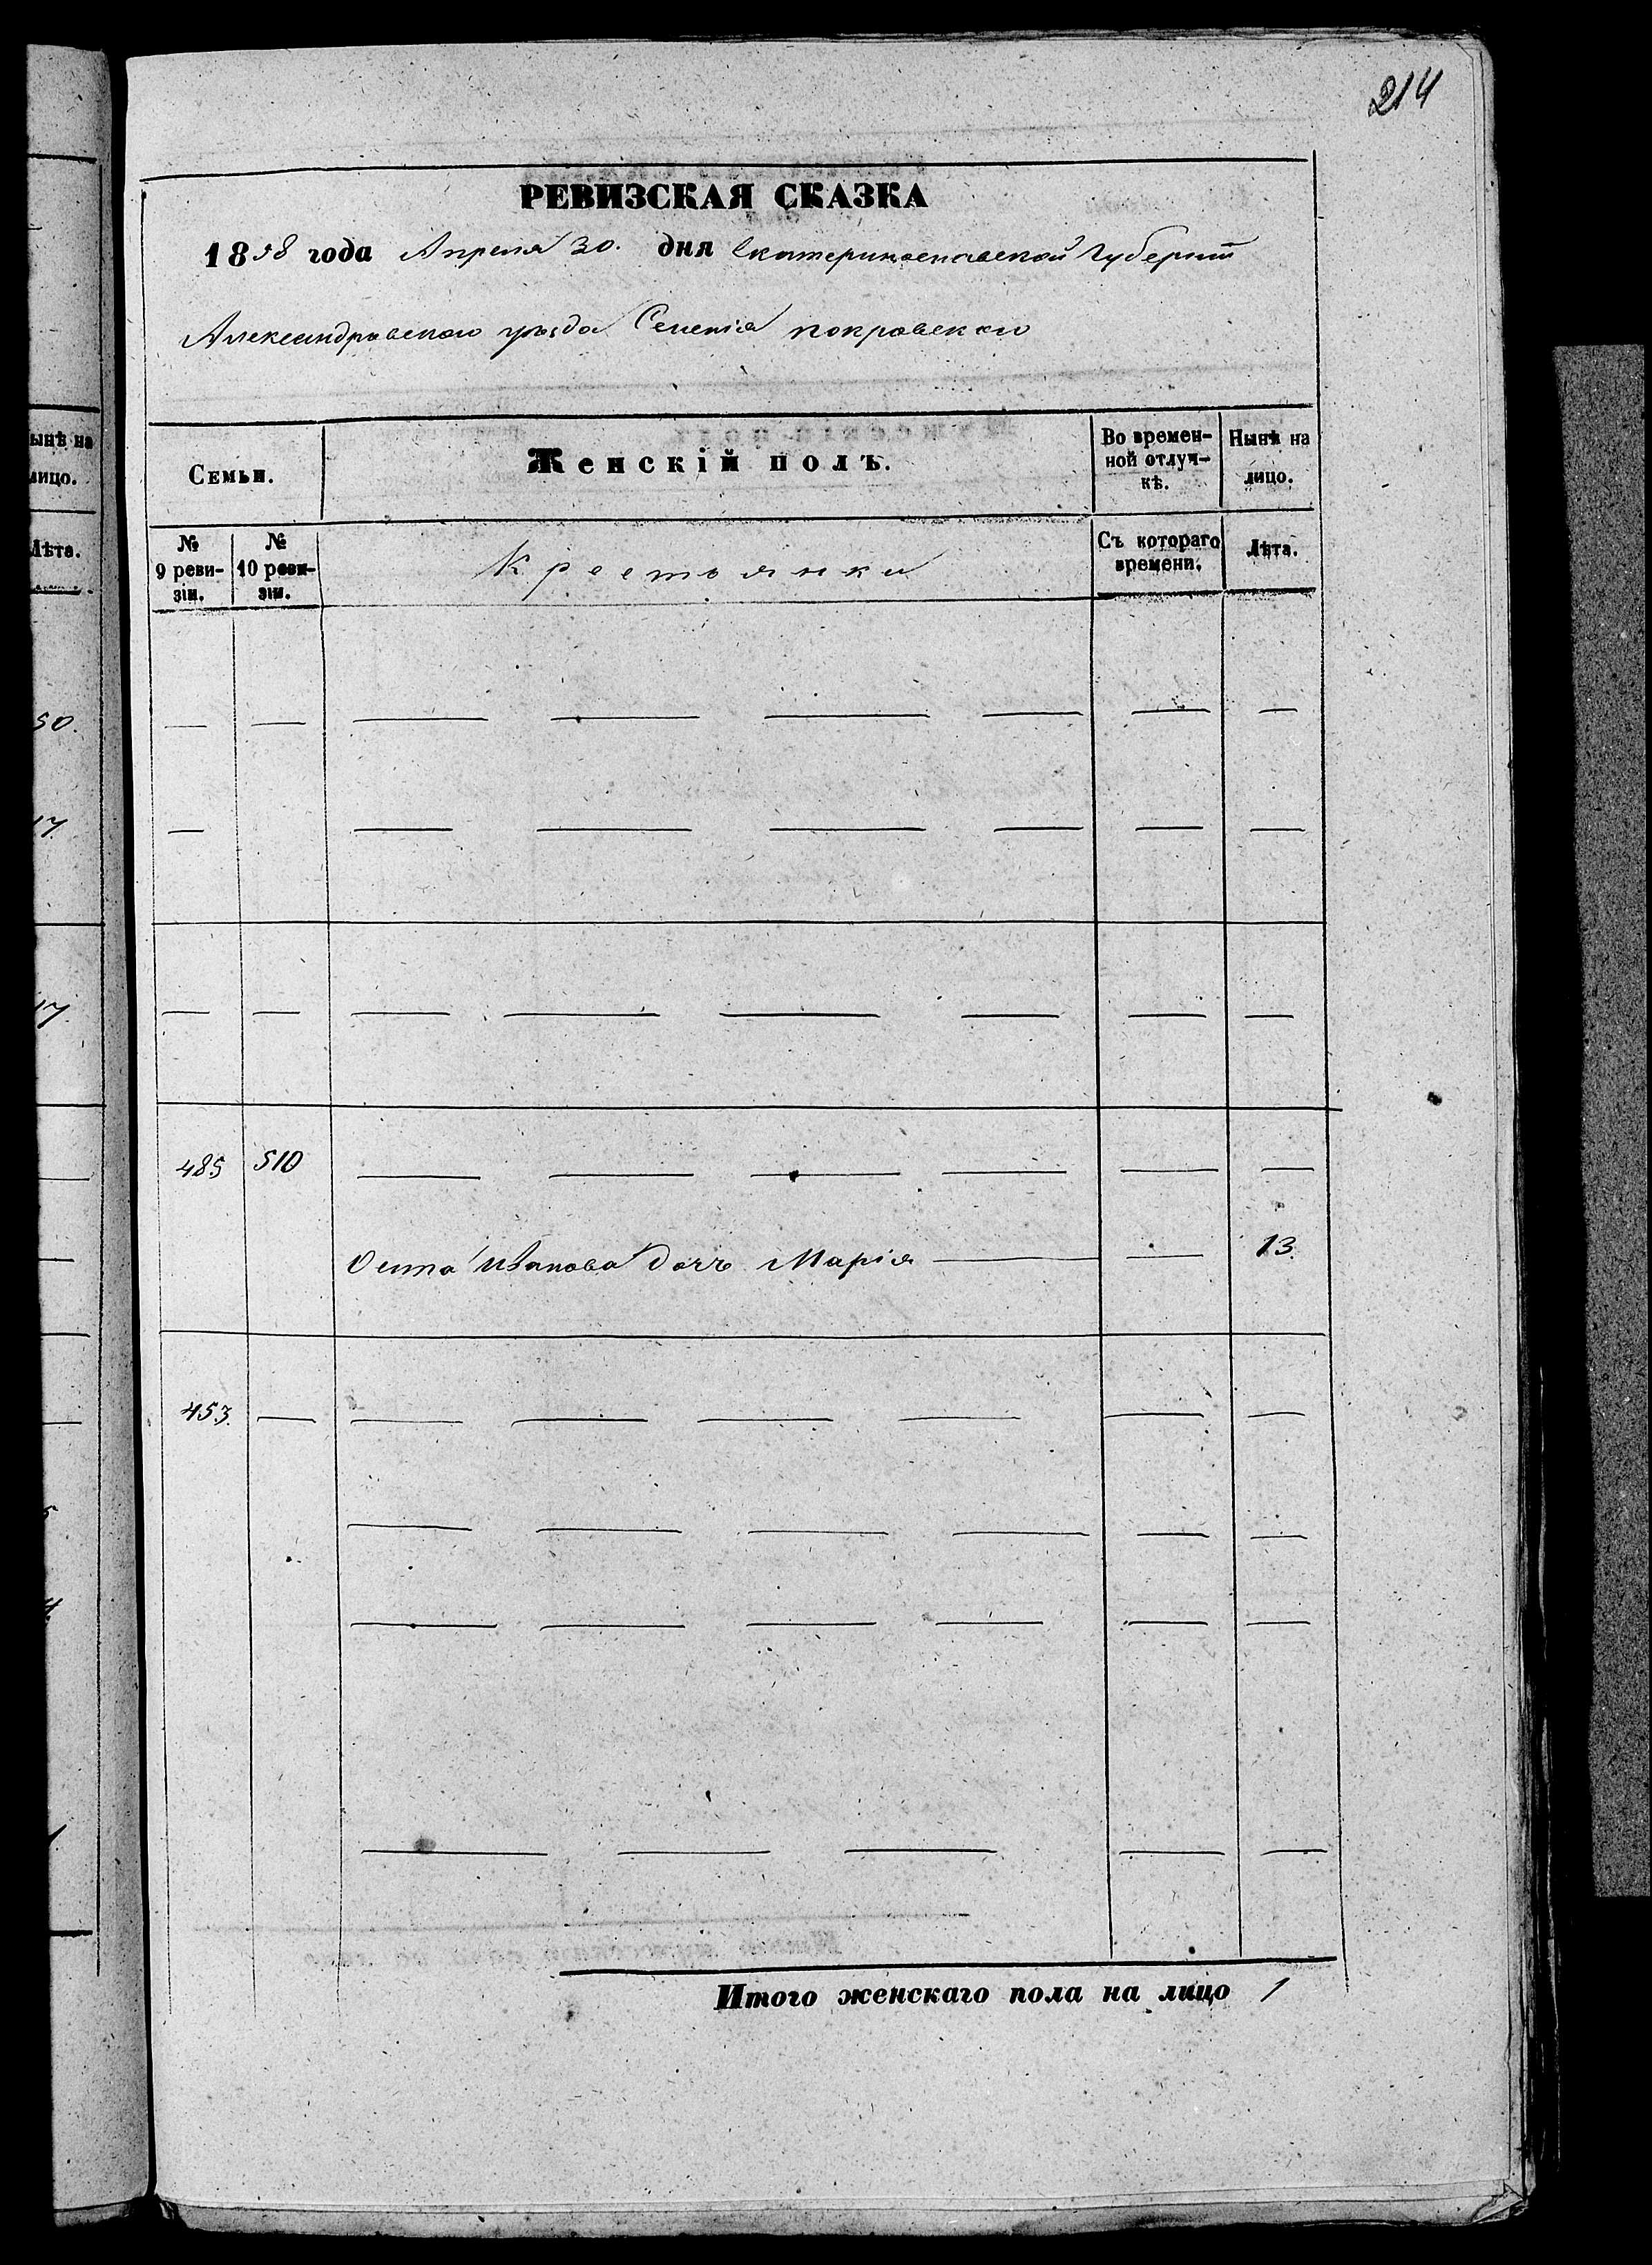 214
РЕВИЗСКАЯ СКАЗКА
1858 года Апреля 30. дня Екатеринославской Губернiи
Александровскаго уѣзда Селенія покровскаго
Семьи.
Женскій полъ.
Во времен-
ной отлуч-
кѣ.
Нынѣ на
лицо.
№
9 реви-
зіи.
№
10 реви-
зіи.
Крестьянки
Съ котораго
времени.
Лѣта.
485 510
Иванова дочь Марія 13.
453.
Итого женскаго пола на лицо 1
ынѣ на
лицо.
Лѣта.
50.
17.
17.